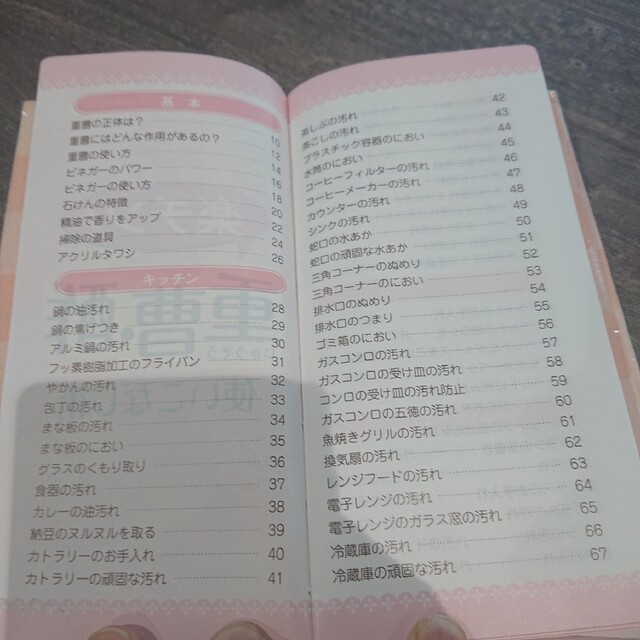 基本
重曹の正体は? 10
重曹にはどんな作用があるの? 12
重曹の使い方 14
ビネガーのパワー 16
ビネガーの使い方 18
石けんの特徴 20
精油で香りをアップ 22
掃除の道具 24
アクリルタワシ 26
キッチン
鍋の油汚れ 28
鍋の焦げつき 29
アルミ鍋の汚れ 30
フッ素樹脂加工のフライパン 31
やかんの汚れ 32
包丁の汚れ 33
まな板の汚れ 34
まな板のにおい 35
グラスのくもり取り 36
食器の汚れ 37
カレーの油汚れ 38
納豆のヌルヌルを取る 39
カトラリーのお手入れ 40
カトラリーの頑固な汚れ 41
茶しぶの汚れ 42
茶こしの汚れ 43
プラスチック容器のにおい 44
水筒のにおい 45
コーヒーフィルターの汚れ 46
コーヒーメーカーの汚れ 47
カウンターの汚れ 48
シンクの汚れ 49
蛇口の水あか 50
蛇口の頑固な水あか 51
三角コーナーのぬめり 52
三角コーナーのにおい 53
排水口のぬめり 54
排水口のつまり 55
ゴミ箱のにおい 56
ガスコンロの汚れ 57
ガスコンロの受け皿の汚れ 58
コンロの受け皿の汚れ防止 59
ガスコンロの五徳の汚れ 60
魚焼きグリルの汚れ 61
換気扇の汚れ 62
レンジフードの汚れ 63
電子レンジの汚れ 64
電子レンジのガラス窓の汚れ 65
冷蔵庫の汚れ 66
冷蔵庫の頑固な汚れ 67